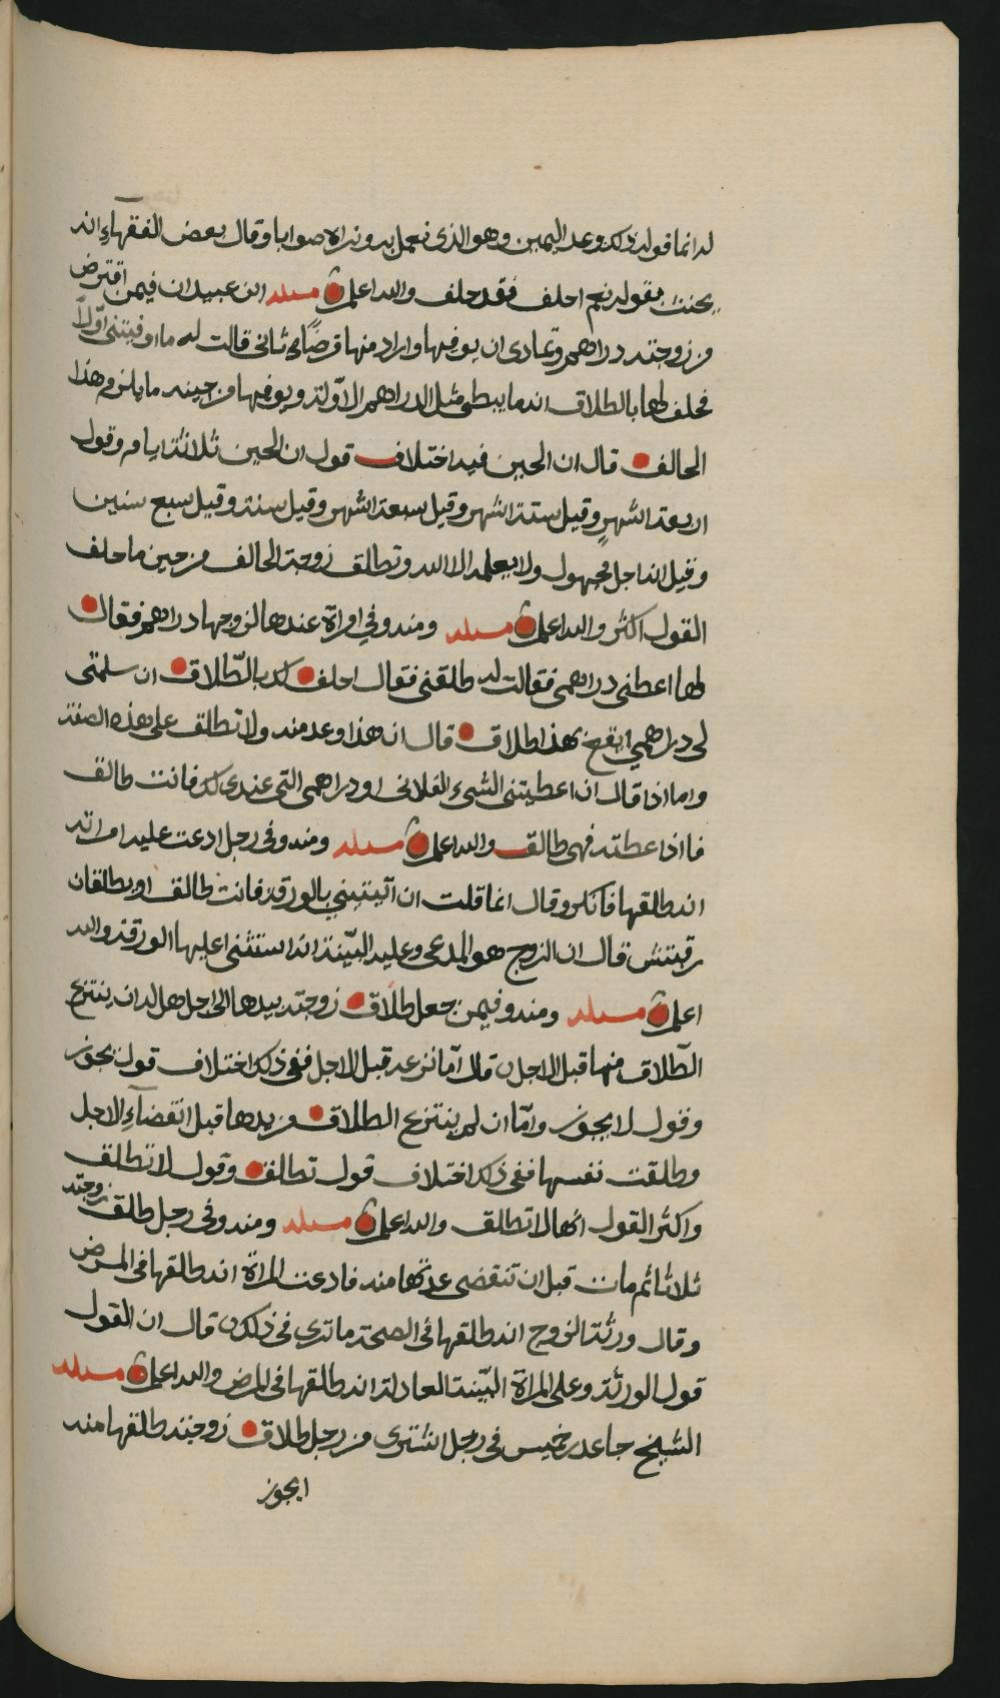 له انما قوله ذلك وعد اليمين وهو الذي نعمل به ونراه صوابا وقال بعض الفقهاء انه
يحنث بقوله نعم احلف فقد حلف والله اعلم مسئله ابن عبيدان فيمن اقترض
من زوجته دراهم وتمادى ان يوفيها واراد منها قرضًا ثاني قالت له ما اوفيتني اوّلًا
فحلف لها بالطلاق انه ما يبطي مثل الدراهم الاوّلة ويوفيها من حينه ما يلزم هذا
الحالف قال ان الحين فيه اختلاف قول ان الحين ثلاثة ايام وقول
اربعة اشهر وقيل ستة اشهر وقيل سبعة اشهر وقيل سنة وقيل سبع سنين
وقيل انه اجل مجهول ولا يعلمه الا الله وتطالق زوجة الحالف من حين ما حلف
القول اكثر والله اعلم مسئله ومنه وفي امراة عندها لزوجها دراهم فقال
لها اعطني دراهمي فقالت له طلقني فقال احلف لك بالطّلاق ان سلمتي
لي دراهمي ايقع بهذا طلاق قال ان هذا وعد منه ولا تطالق على هذه الصفة
واما اذا قال ان اعطيتني الشيء الفلاني او دراهمي التي عندي لك فانت طالق
فااذا عطته فهي طالق والله اعلم مسئله ومنه وفي رجل ادعت عليه امراته
انه طلقها فانكر وقال انما قلت ان اتيتيني بالورقة فانت طالق او بطلقان
قال ان الزوج هو المدعي وعليه البيّنة انه استثنى عليها الورقة والله
اعلم مسئله ومنه وفيمن جعل طلاق زوجته بيدها الى اجل هل له ان ينتزع
الطّلاق منها قبل الاجل قال امّا نزعه قبل الاجل ففي ذلك اختلاف قول يجوز
وقول لا يجوز وامّا ان لم ينتزع الطلاق من يدها قبل انقضاء الاجل
وطلقت نفسها ففي ذلك اختلاف قول تطالق وقول لا تطالق
واكثر القول انها لا تطالق والله اعلم مسئله ومنه وفي رجل طالق زوجته
ثلاثا ثم مات قبل ان تنقضي عدتها منه فادعت المراة انه طالقها في المرض
وقال ورثة الزوج انه طلقها في الصحة ما ترى في ذلك قال ان القول
قول الورثة وعلى المراة البيّنة العادلة انه طالقها في المرض والله اعلم مسئله
الشيخ جاعد بن خميس في رجل اشترى من رجل طلاق زوجته طلقها منه
ايجوز